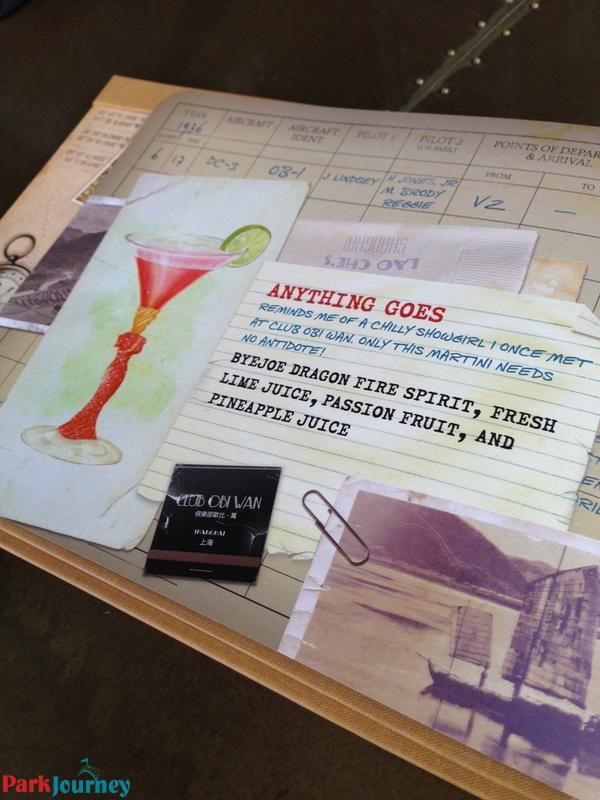 YEAR
1936
AIRCRAFT
AIRCRAFT
IDENT
PILOT 1
PILOT 2
(OR PASS.)
POINTS OF DEPAR
& ARRIVAL
DAY
FROM
TO
6 17 DC-3 OB-1 J. LINDSEY
H JONES, JR
M. BRODY
REGGIE
VZ —
LAO CHE'S
SHANGHAI
ANYTHING GOES
REMINDS ME OF A CHILLY SHOWGIRL I ONCE MET
AT CLUB OBI WAN. ONLY THIS MARTINI NEEDS
NO ANTIDOTE!
BYEJOE DRAGON FIRE SPIRIT, FRESH
LIME JUICE, PASSION FRUIT, AND
PINEAPPLE JUICE
CLUB OBI WAN
俱樂部歐比·萬
SHANGHAI
上海
ParkJourney